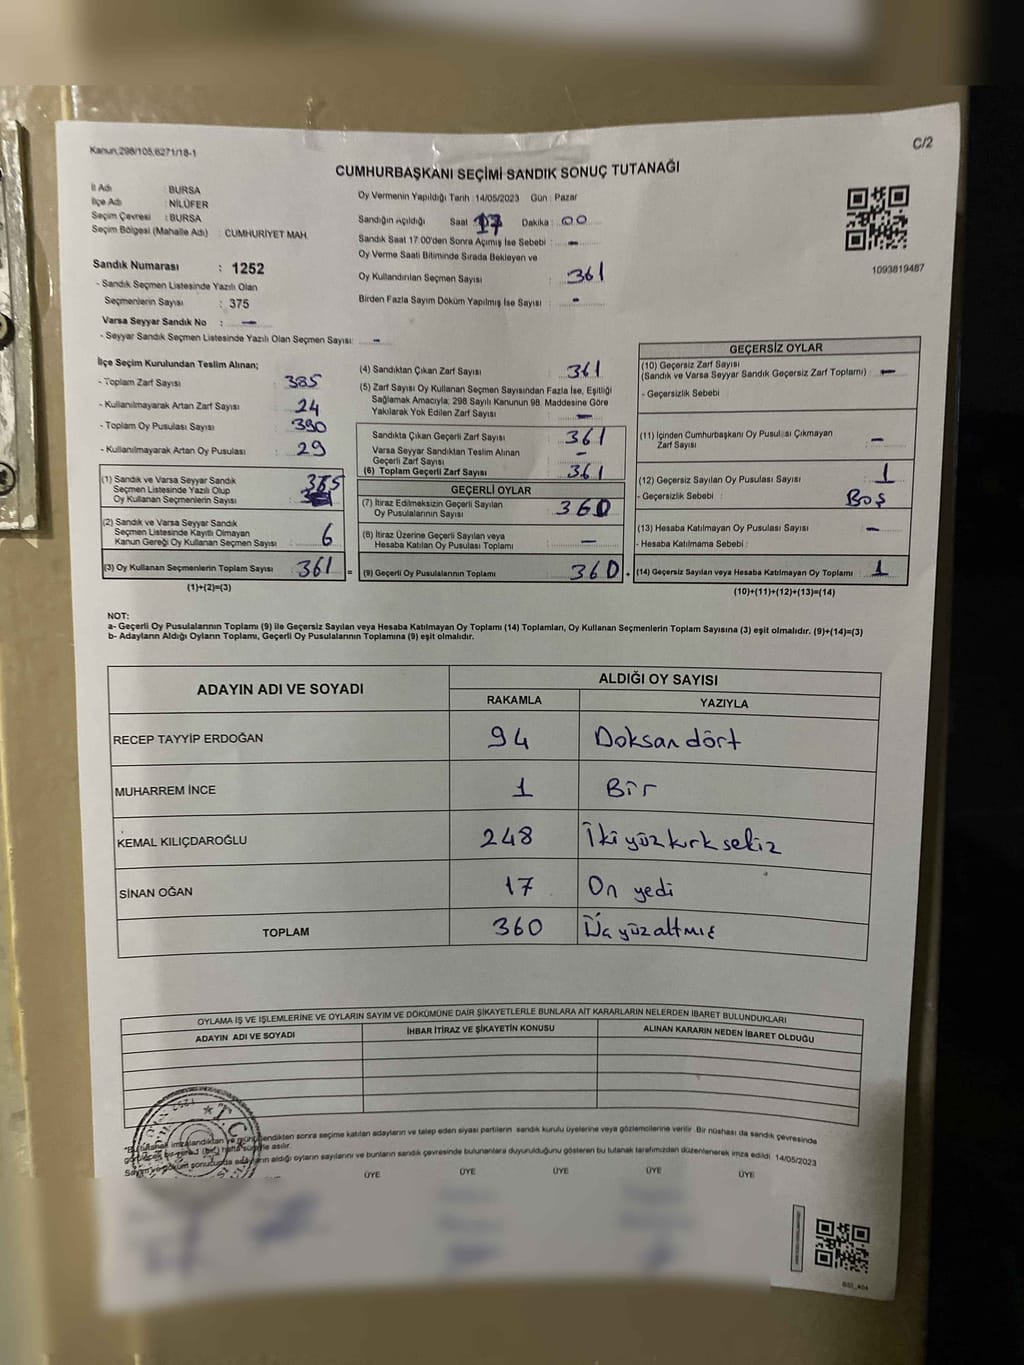 Kanun,298/105,6271/18-1
C/2
CUMHURBAŞKANI SEÇİMİ SANDIK SONUÇ TUTANAĞI
İl Adı : BURSA
İlçe Adı : NİLÜFER
Seçim Çevresi : BURSA
Seçim Bölgesi (Mahalle Adı) : CUMHURİYET MAH.
Sandık Numarası : 1252
- Sandık Seçmen Listesinde Yazılı Olan
Seçmenlerin Sayısı : 375
Varsa Seyyar Sandık No : —
- Seyyar Sandık Seçmen Listesinde Yazılı Olan Seçmen Sayısı: -
Oy Vermenin Yapıldığı Tarih : 14/05/2023 Gün : Pazar
Sandığın Açıldığı Saat 17 Dakika : 00
Sandık Saat 17:00'den Sonra Açımış İse Sebebi : -
Oy Verme Saati Bitiminde Sırada Bekleyen ve
Oy Kullandırılan Seçmen Sayısı : 361
Birden Fazla Sayım Döküm Yapılmış İse Sayısı : -
1093819487
İlçe Seçim Kurulundan Teslim Alınan;
- Toplam Zarf Sayısı : 385
- Kullanılmayarak Artan Zarf Sayısı : 24
- Toplam Oy Pusulası Sayısı : 390
- Kullanılmayarak Artan Oy Pusulası : 29
(1) Sandık ve Varsa Seyyar Sandık
Seçmen Listesinde Yazılı Olup
Oy Kullanan Seçmenlerin Sayısı :
(2) Sandık ve Varsa Seyyar Sandık
Seçmen Listesinde Kayıtlı Olmayan
Kanun Gereği Oy Kullanan Seçmen Sayısı : 6
(3) Oy Kullanan Seçmenlerin Toplam Sayısı : 361 =
(1)+(2)=(3)
(4) Sandıktan Çıkan Zarf Sayısı : 361
(5) Zarf Sayısı Oy Kullanan Seçmen Sayısından Fazla İse, Eşitliği
Sağlamak Amacıyla; 298 Sayılı Kanunun 98. Maddesine Göre
Yakılarak Yok Edilen Zarf Sayısı : —
Sandıkta Çıkan Geçerli Zarf Sayısı : 361
Varsa Seyyar Sandıktan Teslim Alınan
Geçerli Zarf Sayısı : -
(6) Toplam Geçerli Zarf Sayısı : 361
GEÇERLİ OYLAR
(7) İtiraz Edilmeksizin Geçerli Sayılan
Oy Pusulalarının Sayısı : 360
(8) İtiraz Üzerine Geçerli Sayılan veya
Hesaba Katılan Oy Pusulası Toplamı : —
(9) Geçerli Oy Pusulalarının Toplamı : 360
GEÇERSİZ OYLAR
(10) Geçersiz Zarf Sayısı
(Sandık ve Varsa Seyyar Sandık Geçersiz Zarf Toplamı) : —
- Geçersizlik Sebebi
(11) İçinden Cumhurbaşkanı Oy Pusulası Çıkmayan
Zarf Sayısı : -
(12) Geçersiz Sayılan Oy Pusulası Sayısı : 1
- Geçersizlik Sebebi : Boş
(13) Hesaba Katılmayan Oy Pusulası Sayısı : -
- Hesaba Katılmama Sebebi :
(14) Geçersiz Sayılan veya Hesaba Katılmayan Oy Toplamı : 1
(10)+(11)+(12)+(13)=(14)
NOT:
a- Geçerli Oy Pusulalarının Toplamı (9) ile Geçersiz Sayılan veya Hesaba Katılmayan Oy Toplamı (14) Toplamları, Oy Kullanan Seçmenlerin Toplam Sayısına (3) eşit olmalıdır. (9)+(14)=(3)
b- Adayların Aldığı Oyların Toplamı, Geçerli Oy Pusulalarının Toplamına (9) eşit olmalıdır.
ADAYIN ADI VE SOYADI
ALDIĞI OY SAYISI
RAKAMLA YAZIYLA
RECEP TAYYİP ERDOĞAN 94 Doksan dört
MUHARREM İNCE 1 Bir
KEMAL KILIÇDAROĞLU 248 İki yüz kırk sekiz
SİNAN OĞAN 17 On yedi
TOPLAM 360 Üç yüz altmış
OYLAMA İŞ VE İŞLEMLERİNE VE OYLARIN SAYIM VE DÖKÜMÜNE DAİR ŞİKAYETLERLE BUNLARA AİT KARARLARIN NELERDEN İBARET BULUNDUKLARI
ADAYIN ADI VE SOYADI İHBAR İTİRAZ VE ŞİKAYETİN KONUSU ALINAN KARARIN NEDEN İBARET OLDUĞU
sonra seçime katılan adayların ve talep eden siyasi partilerin sandık kurulu üyelerine veya gözlemcilerine verilir. Bir nüshası da sandık çevresinde
aldığı oyların sayılarını ve bunların sandık çevresinde bulunanlara duyurulduğunu gösteren bu tutanak tarafımızdan düzenlenerek imza edildi. 14/05/2023
ÜYE ÜYE ÜYE ÜYE ÜYE